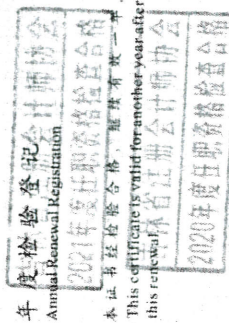 年度检验登记
Annual Renewal Registration
本证书经检验合格，继续有效一年
This certificate is valid for another year after
this renewal
2021年度任职资格检查合格
江苏省注册会计师协会
2020年度任职资格检查合格